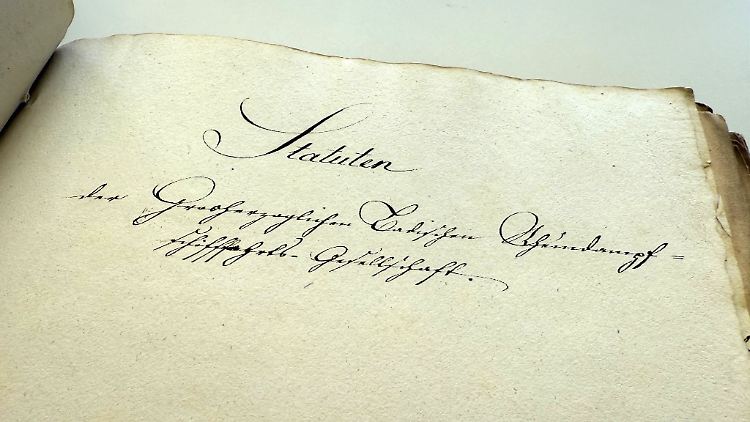 Statuten
der Grosherzoglichen Badischen Rheindampf=
schifffahrts-Gesellschaft.